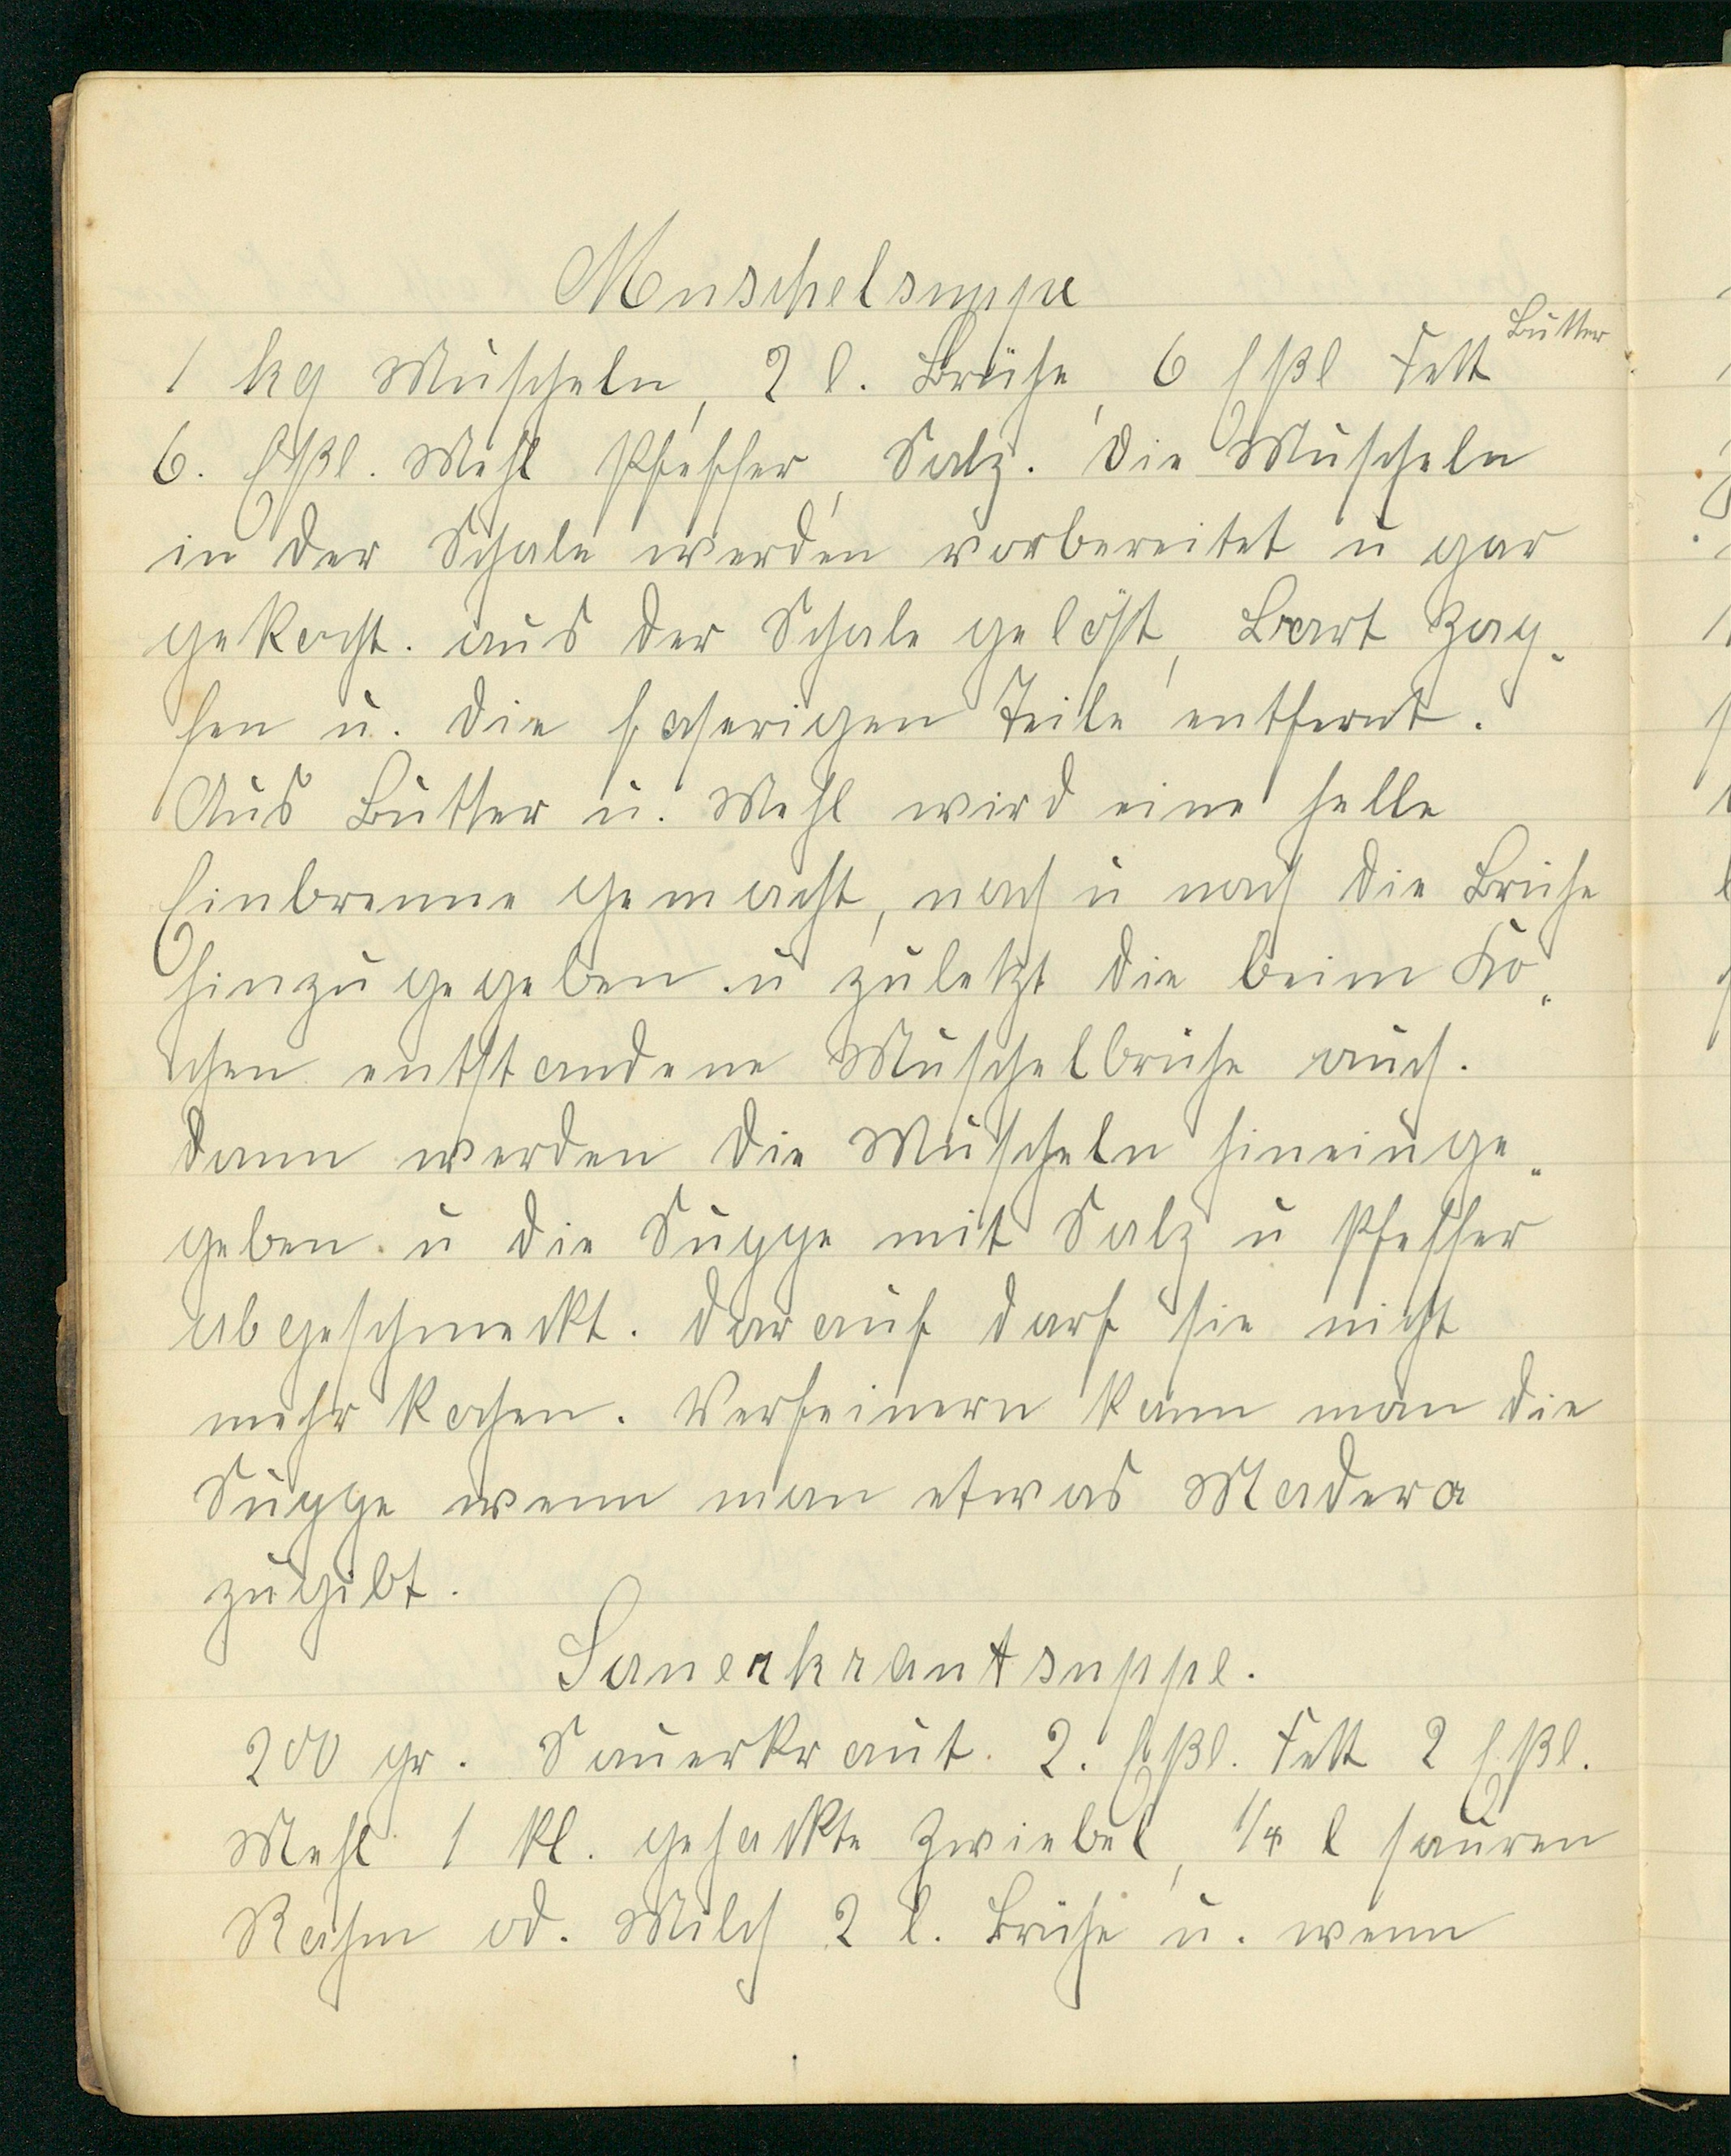 Muschelsuppe
1 kg Muscheln, 2 l. Brühe, 6 Eßl Fett Butter
6. Eßl. Mehl Pfeffer, Salz. Die Muscheln
in der Schale werden vorbereitet u gar
gekocht. aus der Schale gelöst, Bart Zap-
fen u. die faserigen Teile entfernt.
Aus Butter u. Mehl wird eine helle
Einbrenne gemacht, nach u nach die Brühe
hinzugegeben u zuletzt die beim Ko-
chen entstandene Muschelbrühe auch.
Dann werden die Muscheln hineinge-
geben u die Suppe mit Salz u Pfeffer
abgeschmeckt. Darauf darf sie nicht
mehr kochen. Verfeinern kann man die
Suppe wenn man etwas Madera
zugibt.
Sauerkrautsuppe.
200 gr. Sauerkraut. 2. Eßl. Fett 2 Eßl.
Mehl 1 kl. gehackte Zwiebel, 1/4 l sauren
Rahm od. Milch 2 l. Brühe u. wenn